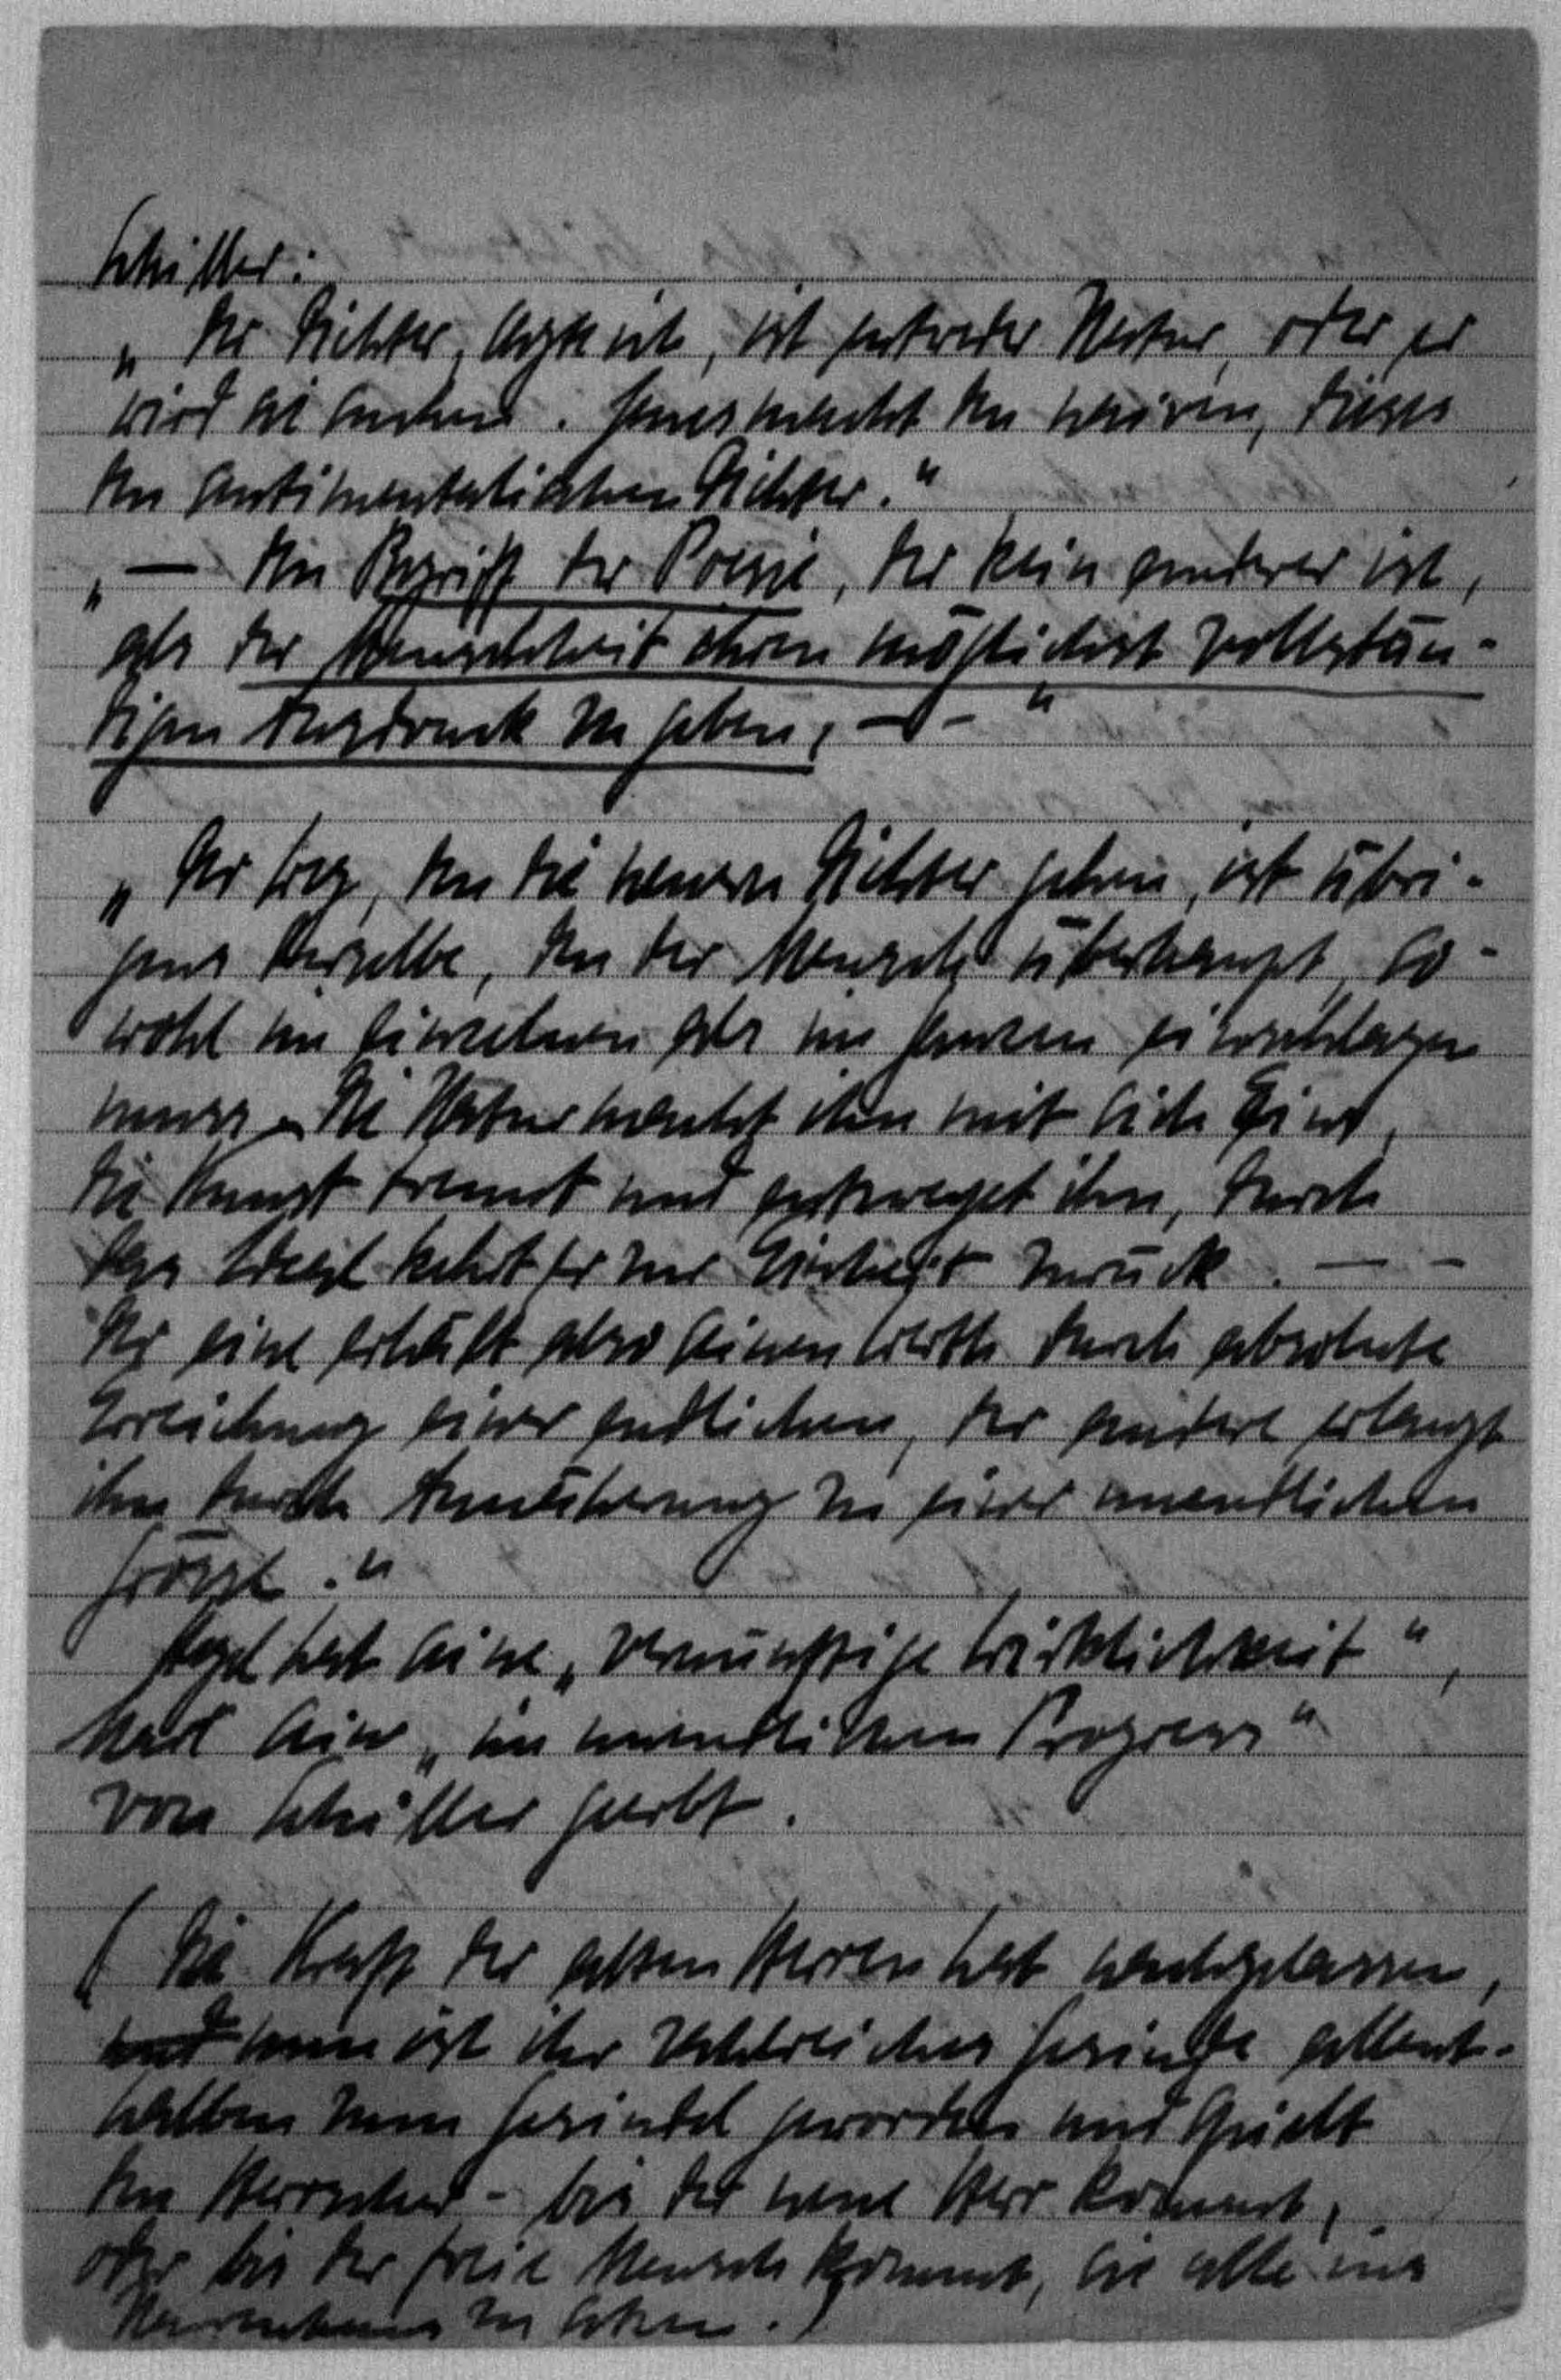 Schiller:
„Der Dichter, sagte ich, ist entweder Natur, oder er
wird sie suchen. Jenes macht den naiven, dieses
den sentimentalischen Dichter."
„— den Begriff der Poesie, der kein anderer ist,
als der Menschheit ihren möglichst vollstän-
digen Ausdruck zu geben, — –"
„Der Weg, den die neueren Dichter gehen, ist übri-
gens derselbe, den der Mensch überhaupt, so-
wohl im einzelnen als im ganzen einschlagen
muss. Die Natur macht ihn mit sich Eins,
die Kunst trennt und entzweyet ihn, durch
das Ideal kehrt er zur Einheit zurück. — –
Der eine erhält also seinen Werth durch absolute
Erreichung einer endlichen, der andere erlangt
ihn durch Annäherung zu einer unendlichen
Grösse."
Hegel hat seine „vernünftige Wirklichkeit",
und sein „im unendlichen Progress"
von Schiller geerbt.
(Die Kraft der alten Herren hat nachgelassen,
und nun ist ihr zahlreiches Gesinde allent-
halben zum Gesindel geworden und spielt
den Herrscher – bis der neue Herr kommt,
oder bis der freie Mensch kommt, sie alle ins
Narrenhaus zu